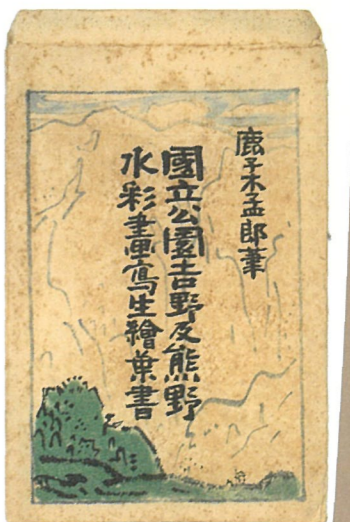 鹿子木孟郎筆
國立公園吉野及熊野
水彩畫寫生繪葉書